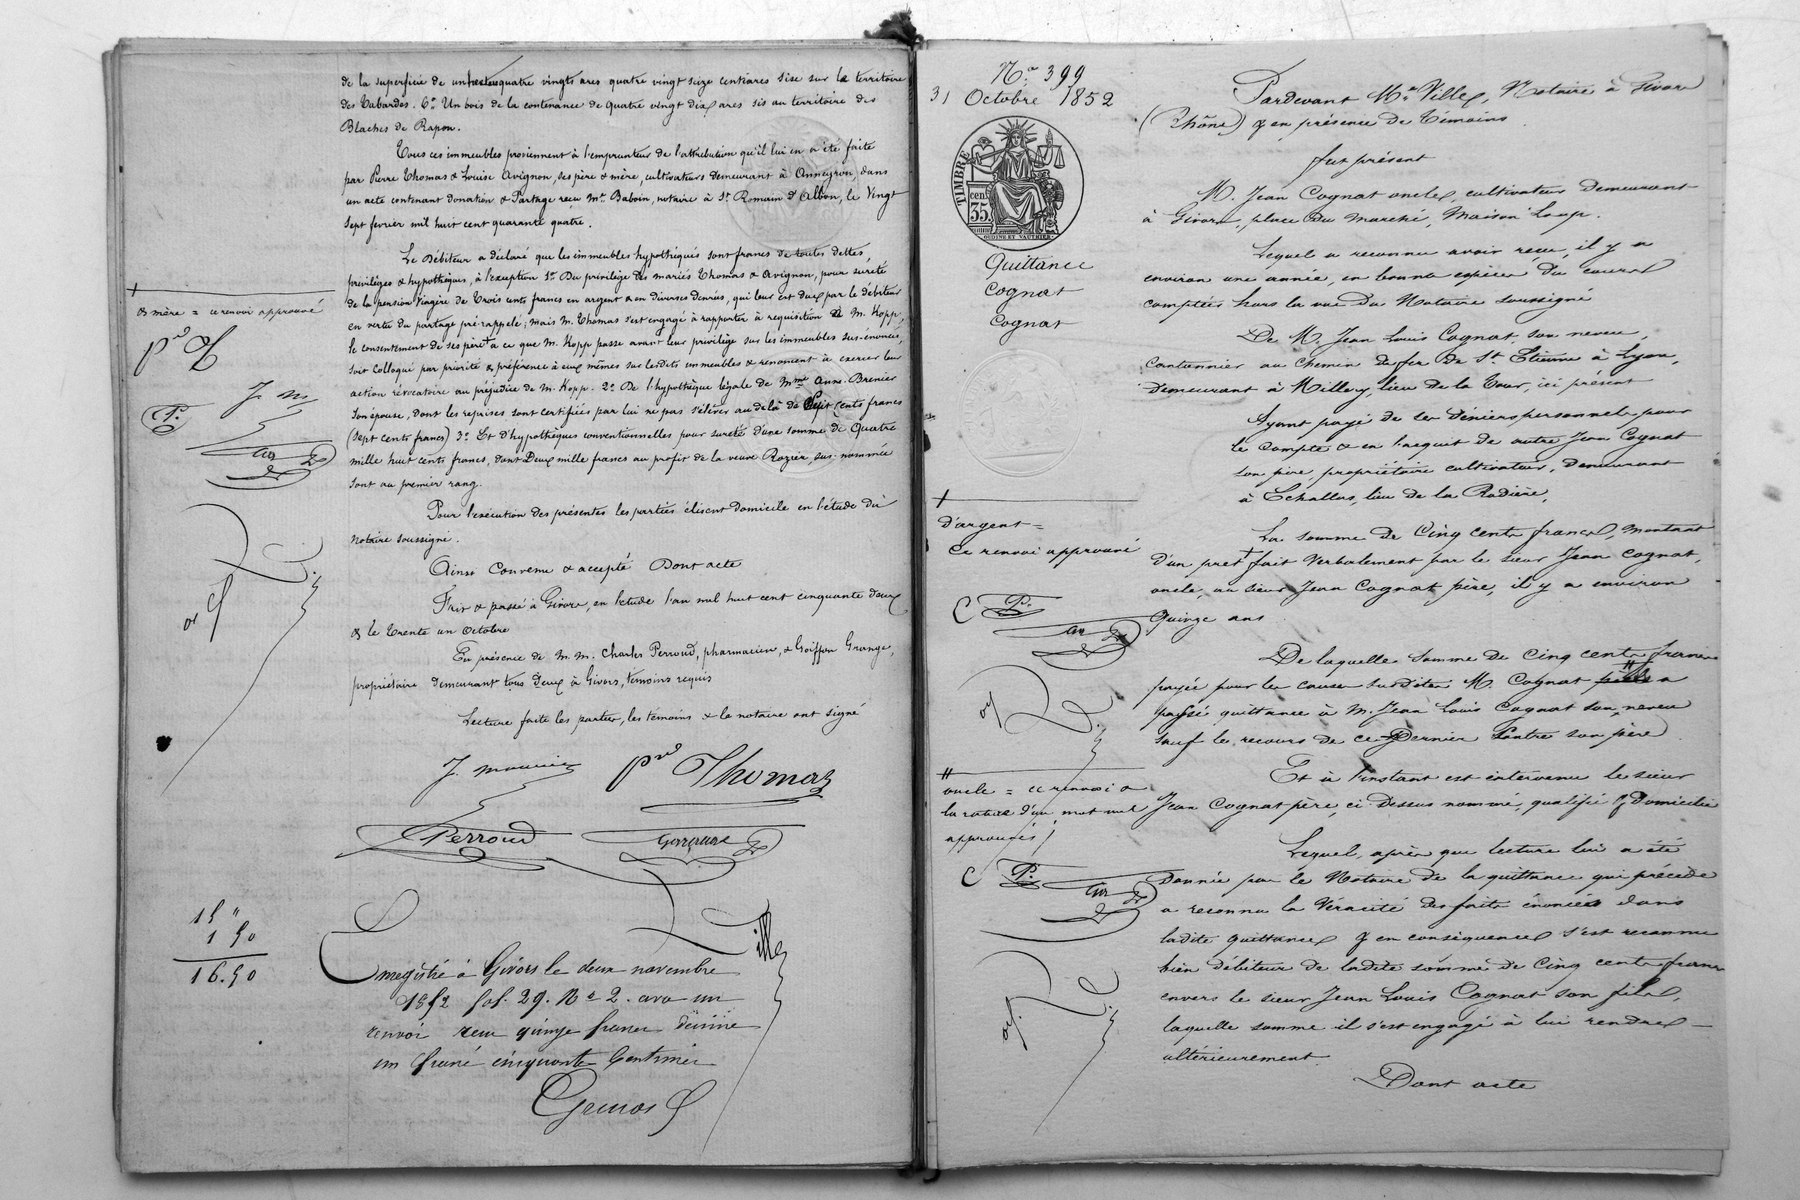 de la superficie de un hectare quatre vingts ares quatre vingt seize centiares sise sur le territoire
des Cabardes. 6º Un bois de la contenance de quatre vingt dix ares sis au territoire des
Blaches de Rapon.
Tous ces immeubles proviennent à l'emprunteur de l'attribution qu'il lui en a été faite
par Pierre Thomas & Louise Avignon, ses père & mère, cultivateurs demeurant à Anneyron, dans
un acte contenant donation & Partage reçu Me Baboin, notaire à St Romain d'Albon, le Vingt
sept fevrier mil huit cent quarante quatre.
Le Débiteur a déclaré que les immeubles hypothéqués sont francs de toutes dettes,
privilèges & hypothèques, à l'exception 1º Du privilège des mariés Thomas & Avignon, pour sureté
de la pension viagère de Trois cents francs en argent & en diverses denrées, qui leur est due par le débiteur
en vertu du partage pré-rappelé; mais M. Thomas s'est engagé à rapporter à requisition de M. Kopp,
le consentement de ses père + a ce que M. Kopp passe avant leur privilège sur les immeubles sus-énoncés,
soit colloqué par priorité & préférence à eux mêmes sur lesdits immeubles & renoncent à exercer leur
action révocatoire au préjudice de M. Kopp. 2º De l'hypothèque légale de Mme Anne Brenier
son épouse, dont les reprises sont certifiées par lui ne pas s'élever au delà de Sept Cents francs
(sept cents francs) 3º Et d'hypothèques conventionnelles pour sureté d'une somme de Quatre
mille huit cents francs, dont Deux mille francs au profit de la veuve Rozier, sus-nommée
sont au premier rang.
Pour l'exécution des présentes les parties élisent domicile en l'étude du
notaire soussigné.
Ainsi convenu & accepté Dont acte
Fait & passé à Givors, en l'étude l'an mil huit cent cinquante deux
& le Trente un Octobre
En présence de M. M. Charles Perroud, pharmacien, & Goiffon Grange,
propriétaire demeurant tous deux à Givors, témoins requis
Lecture faite les parties, les témoins & le notaire ont signé
+
& mère = ce renvoi approuvé
J. M
P.
Perroud
Thomas
15 "
1 50
16.50
Enregistré à Givors le deux novembre
1852 fol. 29. Nº 2. avec un
renvoi reçu quinze francs décime
un franc cinquante Centimes
Ville
Nº 399
31 Octobre 1852
TIMBRE
cen.
35
Quittance
Cognat
Cognat
Pardevant Me Ville, Notaire à Givors
(Rhône) & en présence de témoins
fut présent
M. Jean Cognat oncle, cultivateur demeurant
à Givors, place du marché, Maison Loup.
Lequel a reconnu avoir reçu, il y a
environ une année, en bonnes espèces du cours
comptées hors la vue du Notaire soussigné
De M. Jean Louis Cognat, son neveu,
cantonnier au chemin de fer de St Etienne à Lyon,
demeurant à Millery, lieu de la Tour, ici présent
Ayant payé de ses deniers personnels pour
le compte & en l'acquit de autre Jean Cognat
son père, propriétaire cultivateur, demeurant
à Echallas, lieu de la Rodière,
La somme de Cinq cents francs, montant
d'un pret + fait verbalement par le sieur Jean Cognat,
oncle, au sieur Jean Cognat père, il y a environ
quinze ans
De laquelle somme de cinq cents francs
payée pour les causes susdites M. Cognat père a
passé quittance à M. Jean Louis Cognat son neveu
sauf le recours de ce dernier contre son père
Et à l'instant est intervenu le sieur
Jean Cognat père, ci dessus nommé, qualifié & domicilié
Lequel, après que lecture lui a été
donnée par le Notaire de la quittance qui précède
a reconnu la véracité des faits énoncés dans
ladite quittance & en conséquence s'est reconnu
bien débiteur de ladite somme de cinq cents francs
envers le sieur Jean Louis Cognat son fils,
laquelle somme il s'est engagé à lui rendre
ultérieurement
Dont acte
+
d'argent =
ce renvoi approuvé
C P.
oncle = ce renvoi &
la rature d'un mot nul
approuvés
C P.